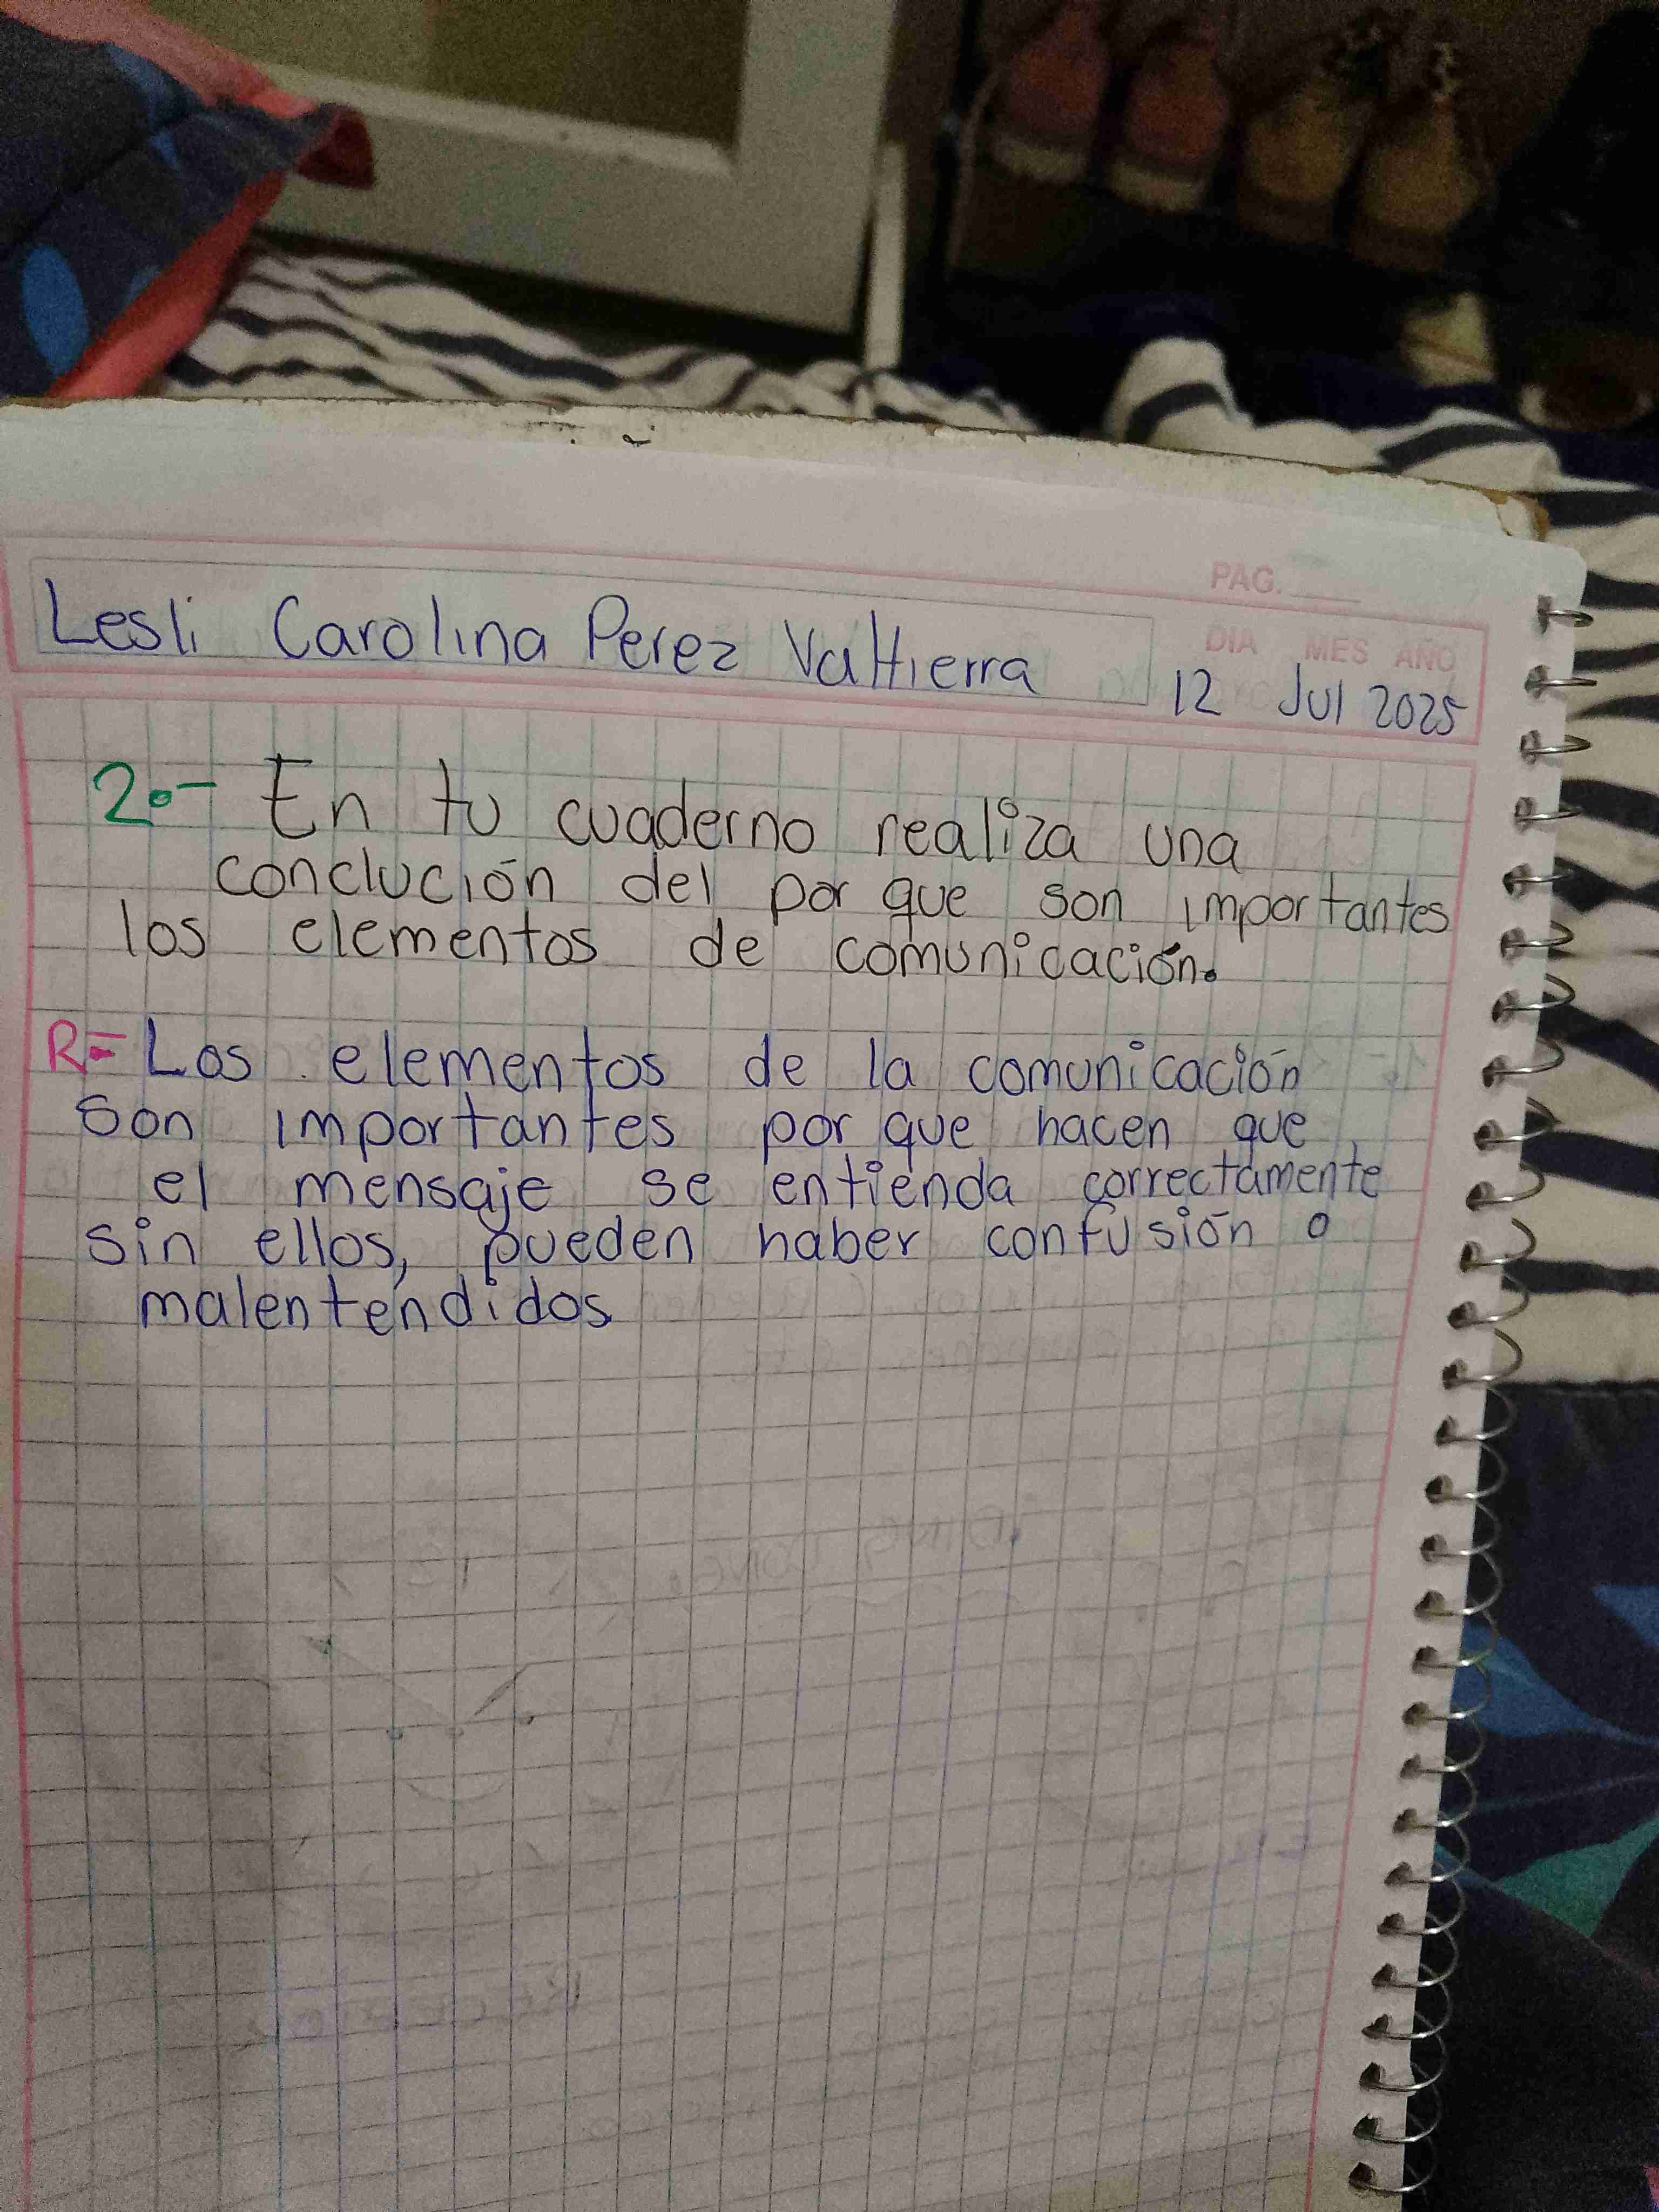 PAG.
DIA MES AÑO
Lesli Carolina Perez Valtierra 12 Jul 2025
2.- En tu cuaderno realiza una
conclución del por que son importantes
los elementos de comunicación.
R= Los elementos de la comunicación
son importantes por que hacen que
el mensaje se entienda correctamente
sin ellos, pueden haber confusión o
malentendidos